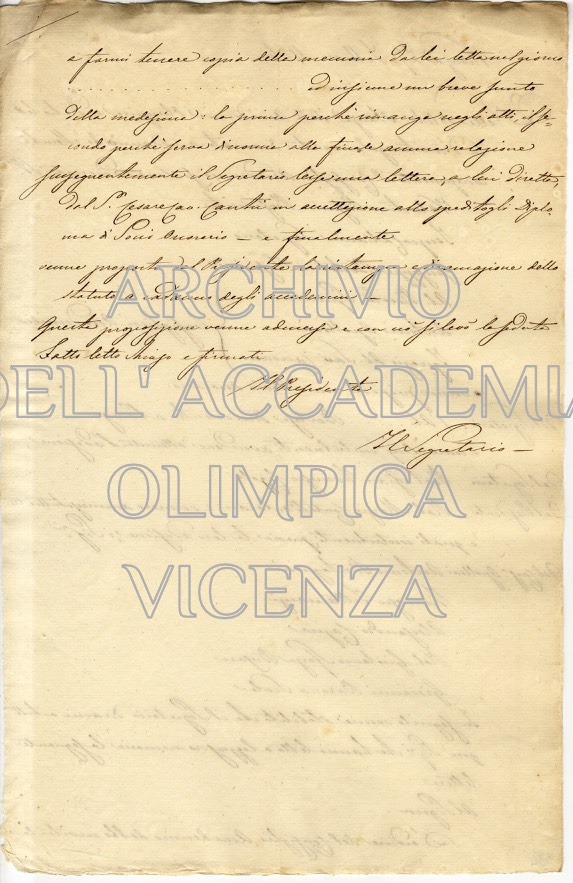 a farmi tenere copia della memoria da lei letta nel giorno
. . . . . . . . . . . . . . . . . . . . ed insieme un breve sunto
della medesima: la prima perchè rimanga negli atti, il se-
condo perchè serva di norma alla finale annua relazione
Susseguentemente il Segretario lesse una lettera, a lui diretta,
del Sr. Cesare Cav. Cantù in accettazione allo speditogli Diplo-
ma di Socio Onorario — e finalmente
venne proposta dal Presidente la ristampa e diramazione dello
statuto a cadauno degli accademici —
Questa proposizione venne admessa e con ciò si levò la seduta
Fatto letto chiuso e firmato
Il Presidente
Il Segretario —
ARCHIVIO
DELL' ACCADEMIA
OLIMPICA
VICENZA